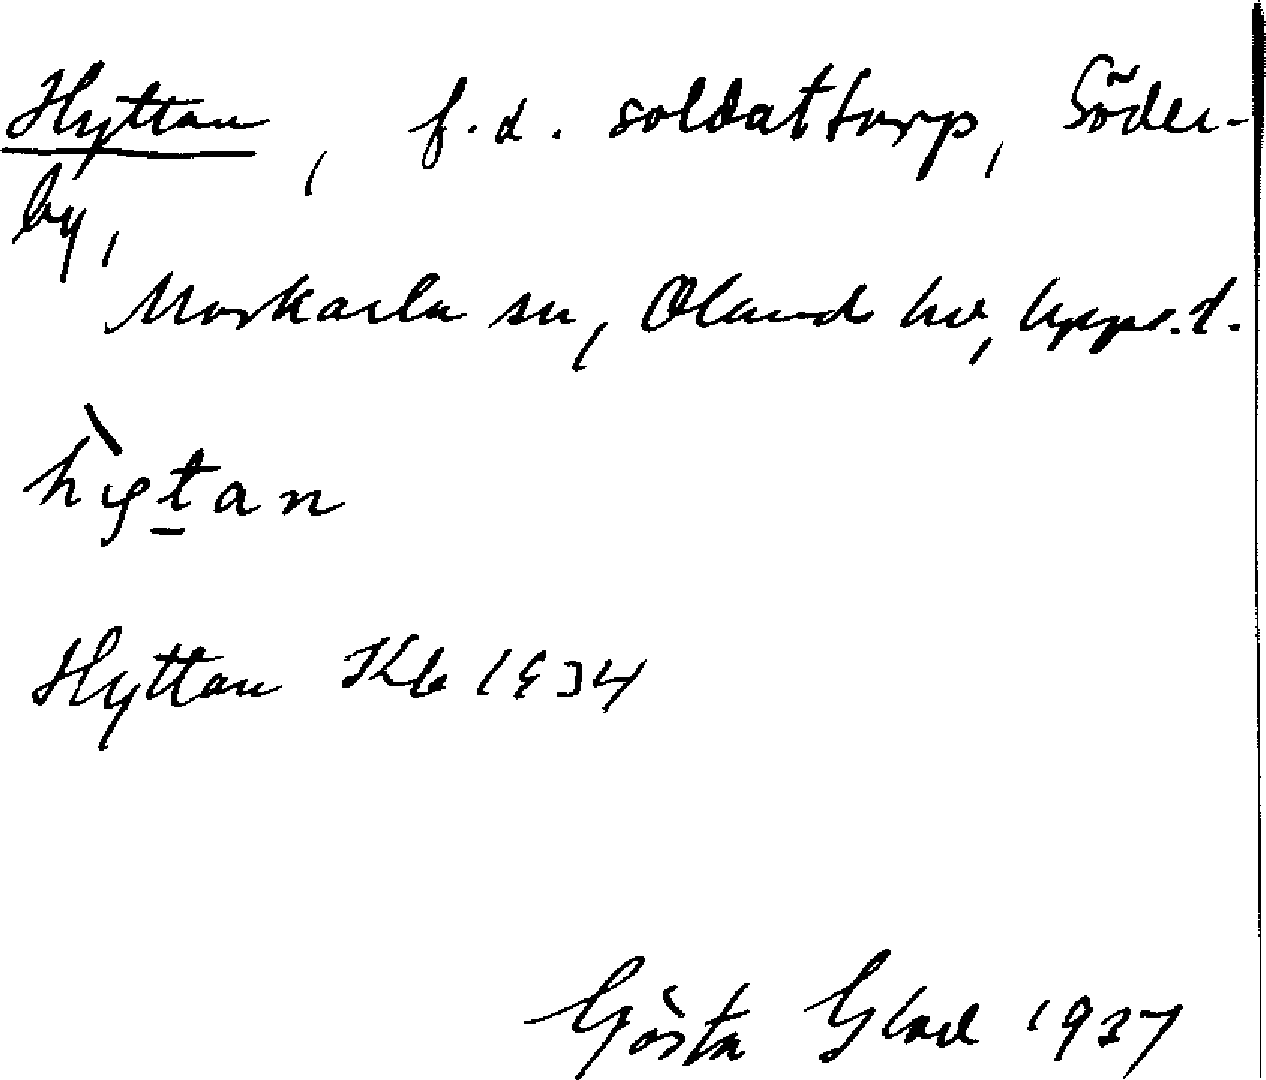 Hyttan, f.d. soldattorp, Söder-
by,
Morkarla sn, Olands hd, Upps. l.
hy̖tan
Hyttan Kb 1934
Gösta Glad 1937